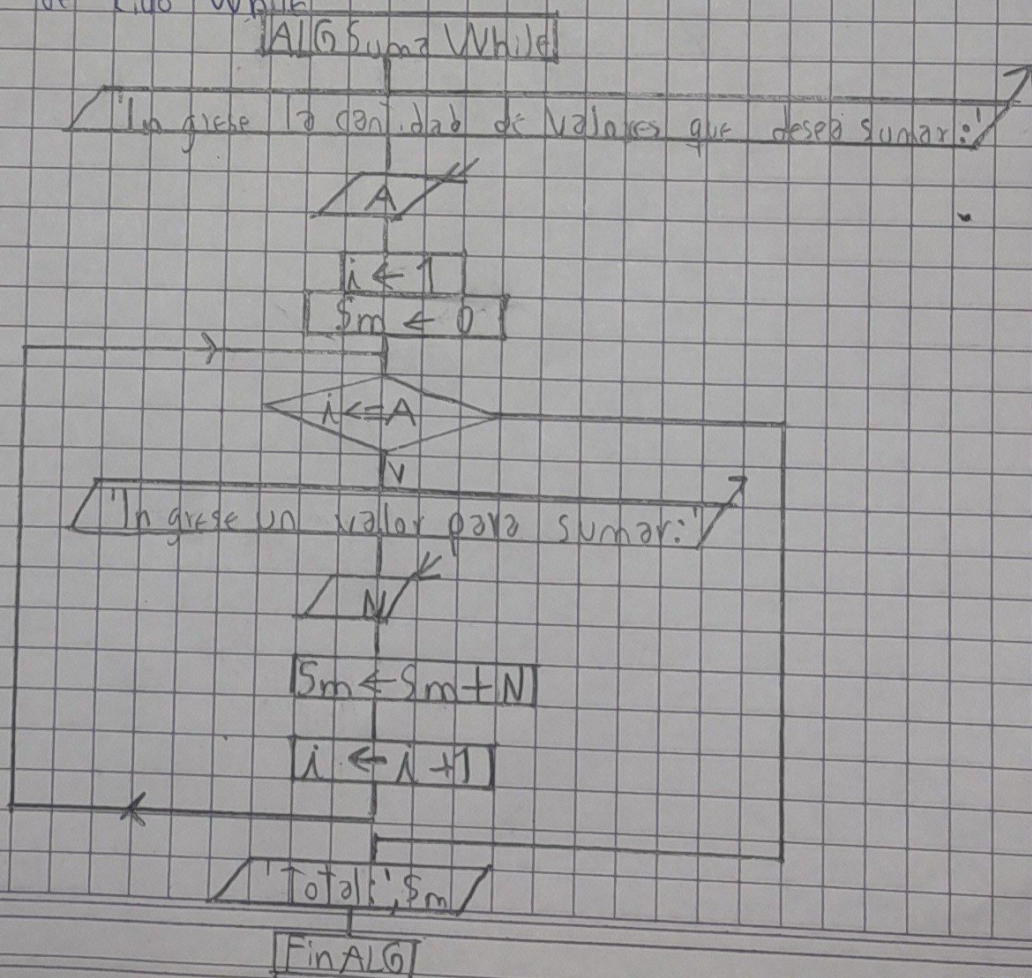 ALG Suma While
'Ingrese la cantidad de valores que desea sumar:'
A
i ← 1
Sm ← 0
i <= A
V
'Ingrese un valor para sumar:'
N
Sm ← Sm + N
i ← i + 1
'Total:', Sm
Fin ALG